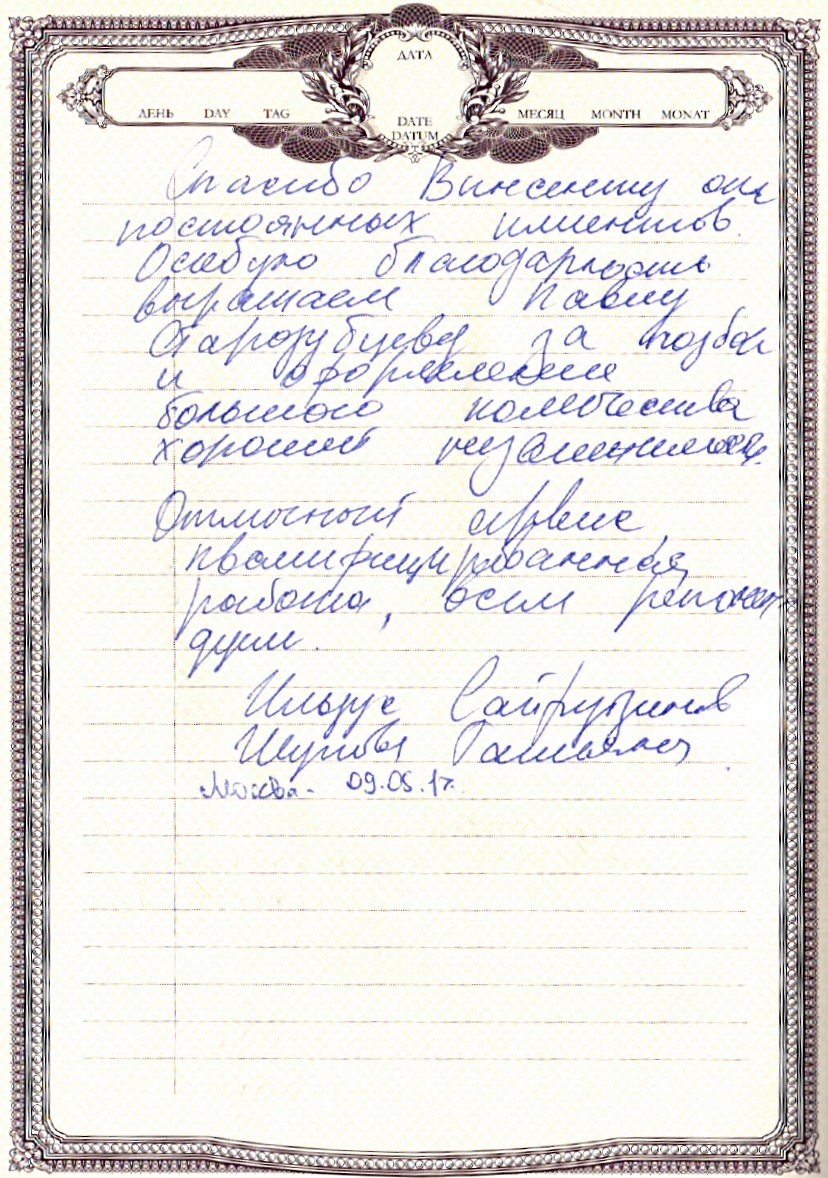 ДАТА
ДЕНЬ DAY TAG
DATE
DATUM
МЕСЯЦ MONTH MONAT
Спасибо Винсенту от
постоянных клиентов.
Особую благодарность
выражаем Павлу
Стародубцеву за подбор
и оформление
большого количества
хороших
Отличный сервис,
квалифицированная
работа, всем рекомен-
дуем.
Ильдус Сайфутдинов
Татьяна
Москва. 09.05.17г.